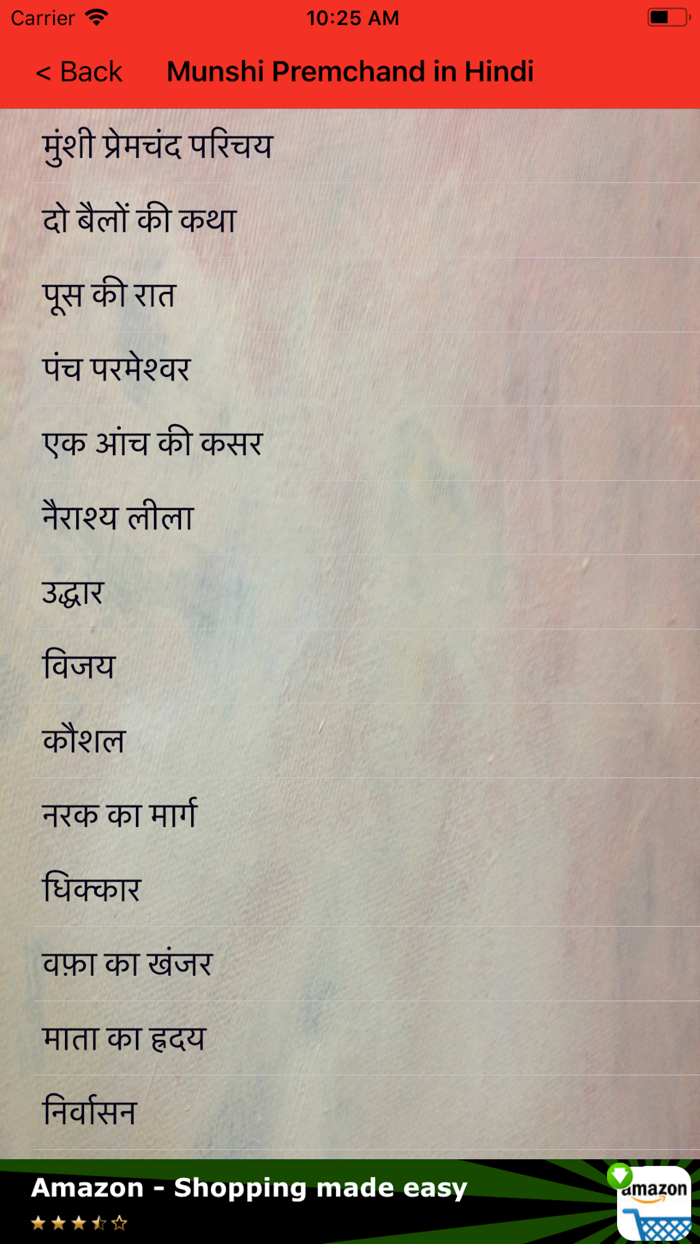 Carrier 10:25 AM
< Back Munshi Premchand in Hindi
मुंशी प्रेमचंद परिचय
दो बैलों की कथा
पूस की रात
पंच परमेश्वर
एक आंच की कसर
नैराश्य लीला
उद्धार
विजय
कौशल
नरक का मार्ग
धिक्कार
वफ़ा का खंजर
माता का ह्रदय
निर्वासन
Amazon - Shopping made easy
amazon